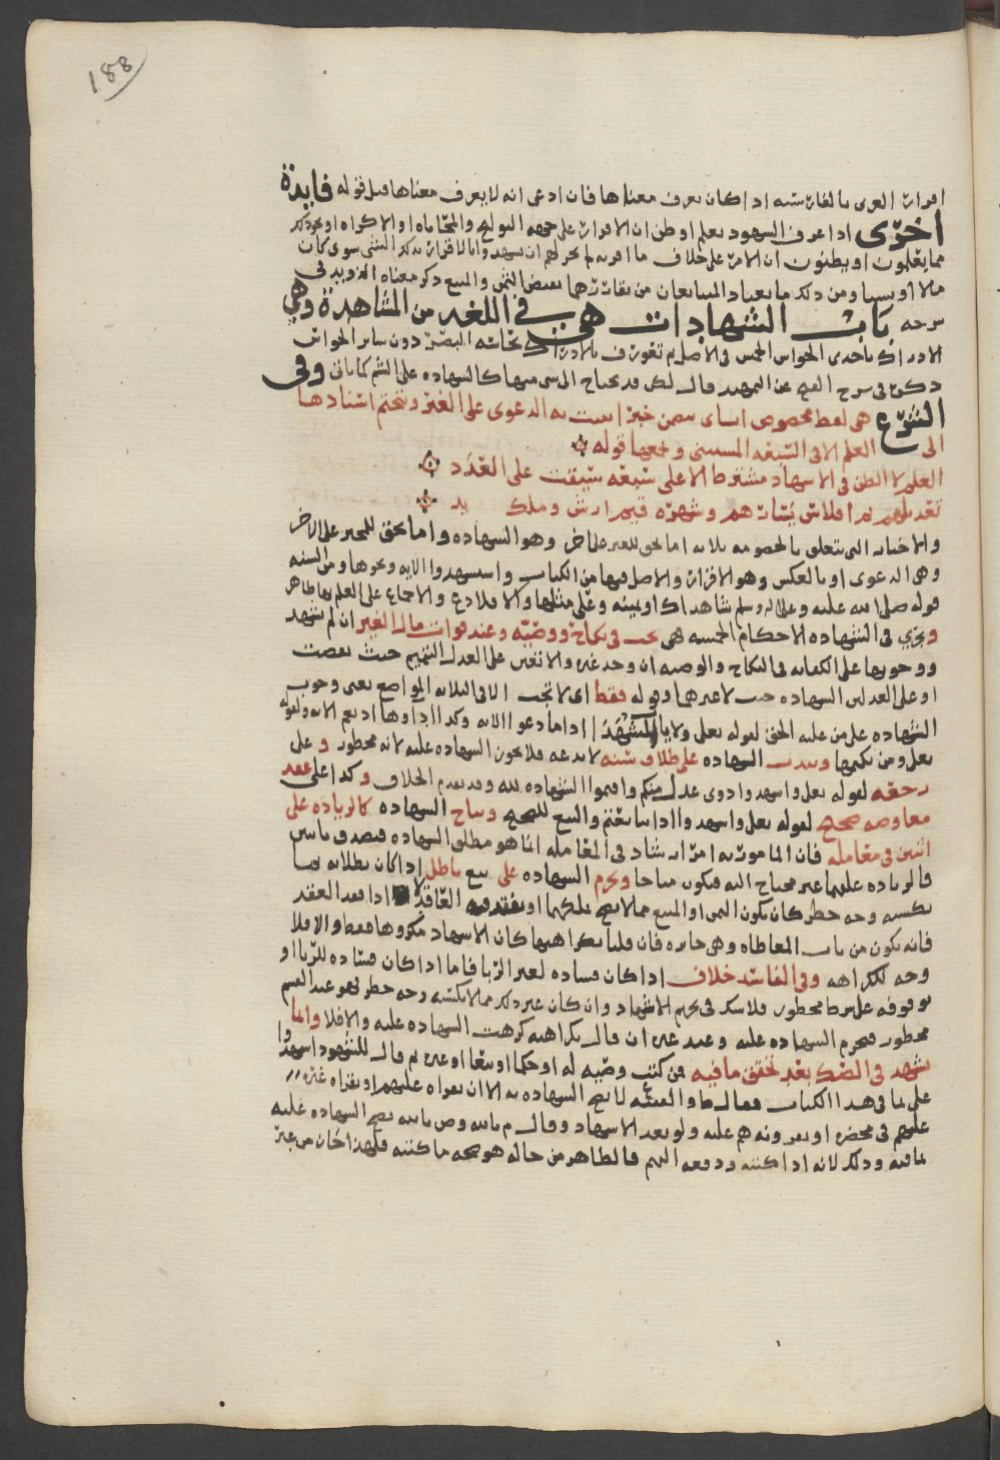 188
اقرار العربي بالفارسية اذا كان يعرف معناها فان ادعى انه لا يعرف معناها قبل قوله فايدة
اخرى اذا عرف الشهود بعلم او ظن ان الاقرار على جهة التوليج والمحاباه او الاكراه او نحو ذلك
مما يعلمون او يظنون ان الامر على خلاف ما اقر به لم يجز لهم ان يشهدوا بالاقرار بذلك الشي سوى كان
مالا او نسبا ومن ذلك ما يعتاد المتبايعان من تقارهما بقبض الثمن والمبيع ذكر معناه الدويد في
شرحه باب الشهادات هي في اللغه من المشاهدة وهي
الادراك باحدى الحواس الخمس في الاصل ثم تعورف بالادراك بحاسه البصر دون سائر الحواس
ذكره في شرح الفتح عن التمهيد قال لكن قد يحتاج الى شي منها كالشهاده على الشم كما ياتي وفي
الشرع هي لفظ مخصوص انشاى تضمن خبرا اثبت به الدعوى على الغير وتحتم اسنادها
الى العلم الا في السبعه المستثنى وجمعها قوله
العلم لا الظن في الاشهاد مشترط الا على سبعه سيقت على العدد
تعديلهم ثم افلاس يسارهم وشهره قيم ارش وملك يد
والاخبار التي تتعلق بالخصومه ثلاثه اما بحق للغير على اخر وهو الشهاده واما بحق للمخبر على اخر
وهي الدعوى او بالعكس وهو الاقرار والاصل فيها من الكتاب واستشهدوا الايه ونحوها ومن السنه
قوله صلى الله عليه وعلى اله وسلم شاهداك او يمينه وعلى مثلها والا فلا دع والاجماع على العلم بها ظاهر
ويجري في الشهاده الاحكام الخمسه هي تجب في نكاح ووصيه وعند فوات مال الغير ان لم تشهد
ووجوبها على الكفايه في النكاح والوصيه ان وجد غيره والا تعين على العدل التتميم حيث نقصت
او على العدلين الشهاده حيث لا غيرهما وقوله فقط اي لا تجب الا في الثلاثه المواضع يعني وجوب
الشهاده على من عليه الحق لقوله تعلى ولا ياب الشهدا اذا ما دعوا الايه وكذا اداوها اذ نعم الايه ولقوله
تعلى ومن يكتمها وتندب الشهاده على طلاق سنه لا بدعه فلا يجوز الشهاده عليه لانه محظور وعلى
رجعه لقوله تعلى واشهدوا ذوى عدل منكم واقيموا الشهاده لله وقد تقدم الخلاف وكذا على عقد
معاوضه صحيح لقوله تعلى واشهدوا اذا تبايعتم والبيع للصحيح وتباح الشهاده كالزياده على
اثنين في معامله فان المامور به امر ارشاد في المعامله انما هو مطلق الشهاده فيصدق باثنين
فالزياده عليهما غير محتاج اليه فيكون مباحا وتحرم الشهاده على بيع باطل اذا كان بطلانه مما
يكسبه وجه حظر كان يكون الثمن او المبيع مما لا يصح تملكهما او يفقد فيه العاقد لا اذا فقد العقد
فانه يكون من باب المعاطاه وهي جايزه فان قلنا بكراهتها كان الاشهاد مكروها فقط والا فلا
وجه للكراهه وفي الفاسد خلاف اذا كان فساده لغير الربا فاما اذا كان فساده للربا او
توقوفه على شرط محظور فلا شك في تحريم الاشهاد وان كان غير ذلك مما لا يكسبه وجه حظر فهو عند القسم
محظور فيحرم الشهاده عليه وعند غيره ان قال بكراهته كرهت الشهاده عليه والا فلا وانما
يشهد في الصك بعد تحقق ما فيه من كتب وصيه له او حكما او بيعا او غيره ثم قال للشهود اشهدوا
على بما في هذا الكتاب فقال ط والفقهاء لا يصح الشهاده به الا ان يقراه عليهم او يقراه غيره
عليهم في محضره او يقرونه هم عليه ولو بعد الاشهاد وقال م بالله وص بالله يصح الشهاده عليه
بما فيه وذلك لانه اذا كتبه ودفعه اليهم فالظاهر من حاله هو صحه ما كتبه فلهذا جاز من غير